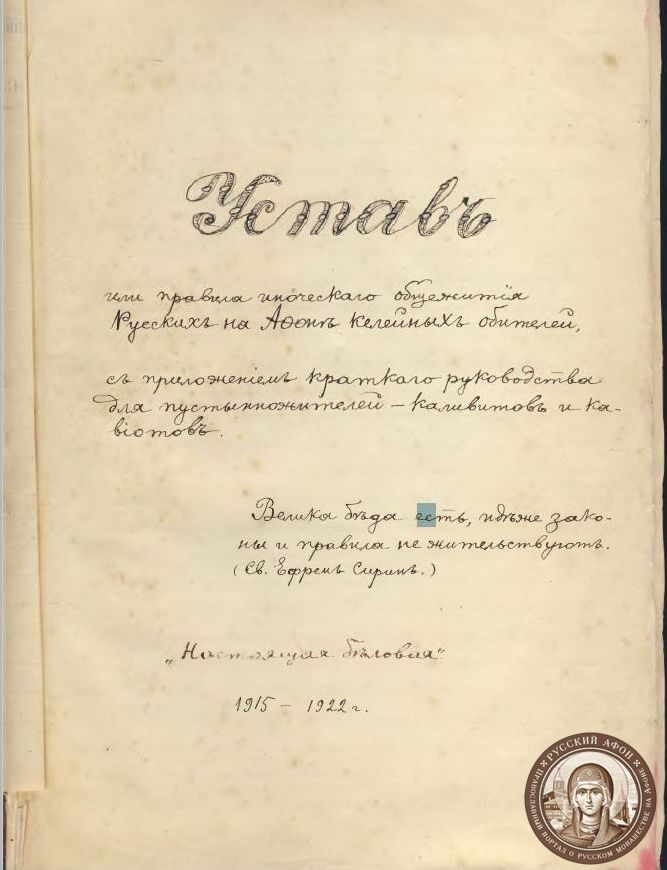 Уставъ
или правила иноческаго общежитія
Русскихъ на Аѳонѣ келейныхъ обителей,
съ приложеніемъ краткаго руководства
для пустынножителей – каливитовъ и ка-
віотовъ.
Велика бѣда есть, идѣже зако-
ны и правила не жительствуютъ.
(Св. Ефремъ Сиринъ.)
„Настоящая бѣловая"
1915 – 1922 г.
РУССКИЙ АФОН
ПРАВОСЛАВНЫЙ ПОРТАЛ О РУССКОМ МОНАШЕСТВЕ НА АФОНЕ